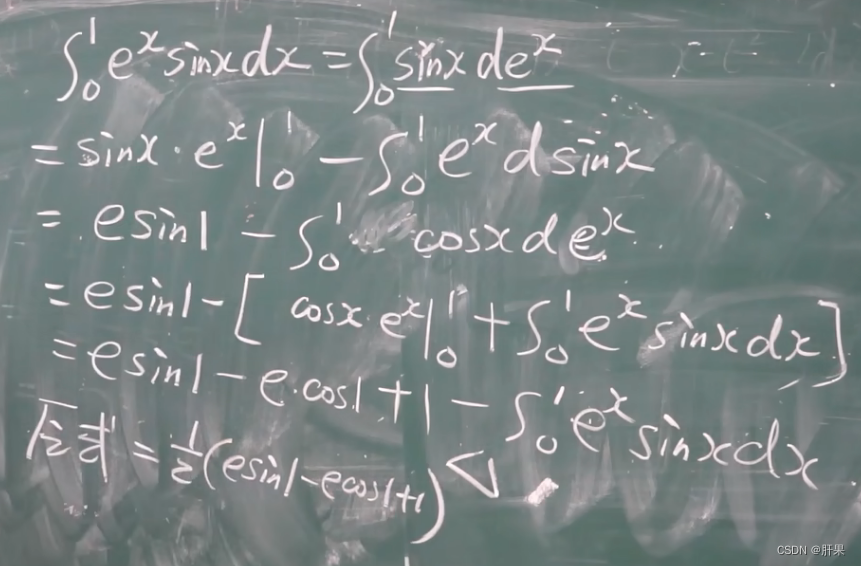 ∫₀¹ eˣ sinx dx = ∫₀¹ sinx deˣ
= sinx · eˣ |₀¹ − ∫₀¹ eˣ d sinx
= e sin1 − ∫₀¹ cosx d eˣ
= e sin1 − [ cosx eˣ |₀¹ + ∫₀¹ eˣ sinx dx ]
= e sin1 − e·cos1 + 1 − ∫₀¹ eˣ sinx dx
原式 = ½ (e sin1 − e cos1 + 1)
CSDN @肝果